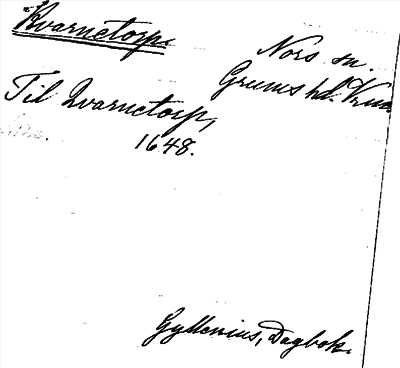 Kvarnetorp
Nors sn.
Grums hd. Vrml
Til Qvarnetorp,
1648.
Gyllenius, Dagbok.